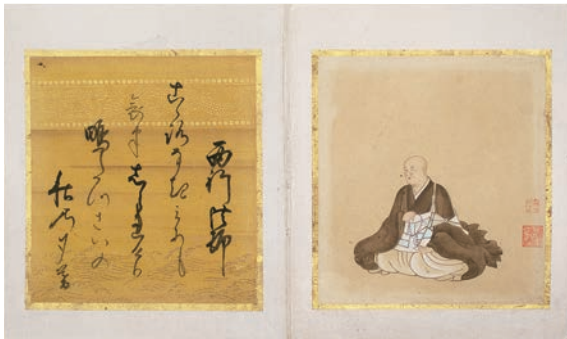 西行法師
こゝろなき身にも
哀はしられけり
鴫たつさはの
秋の夕暮